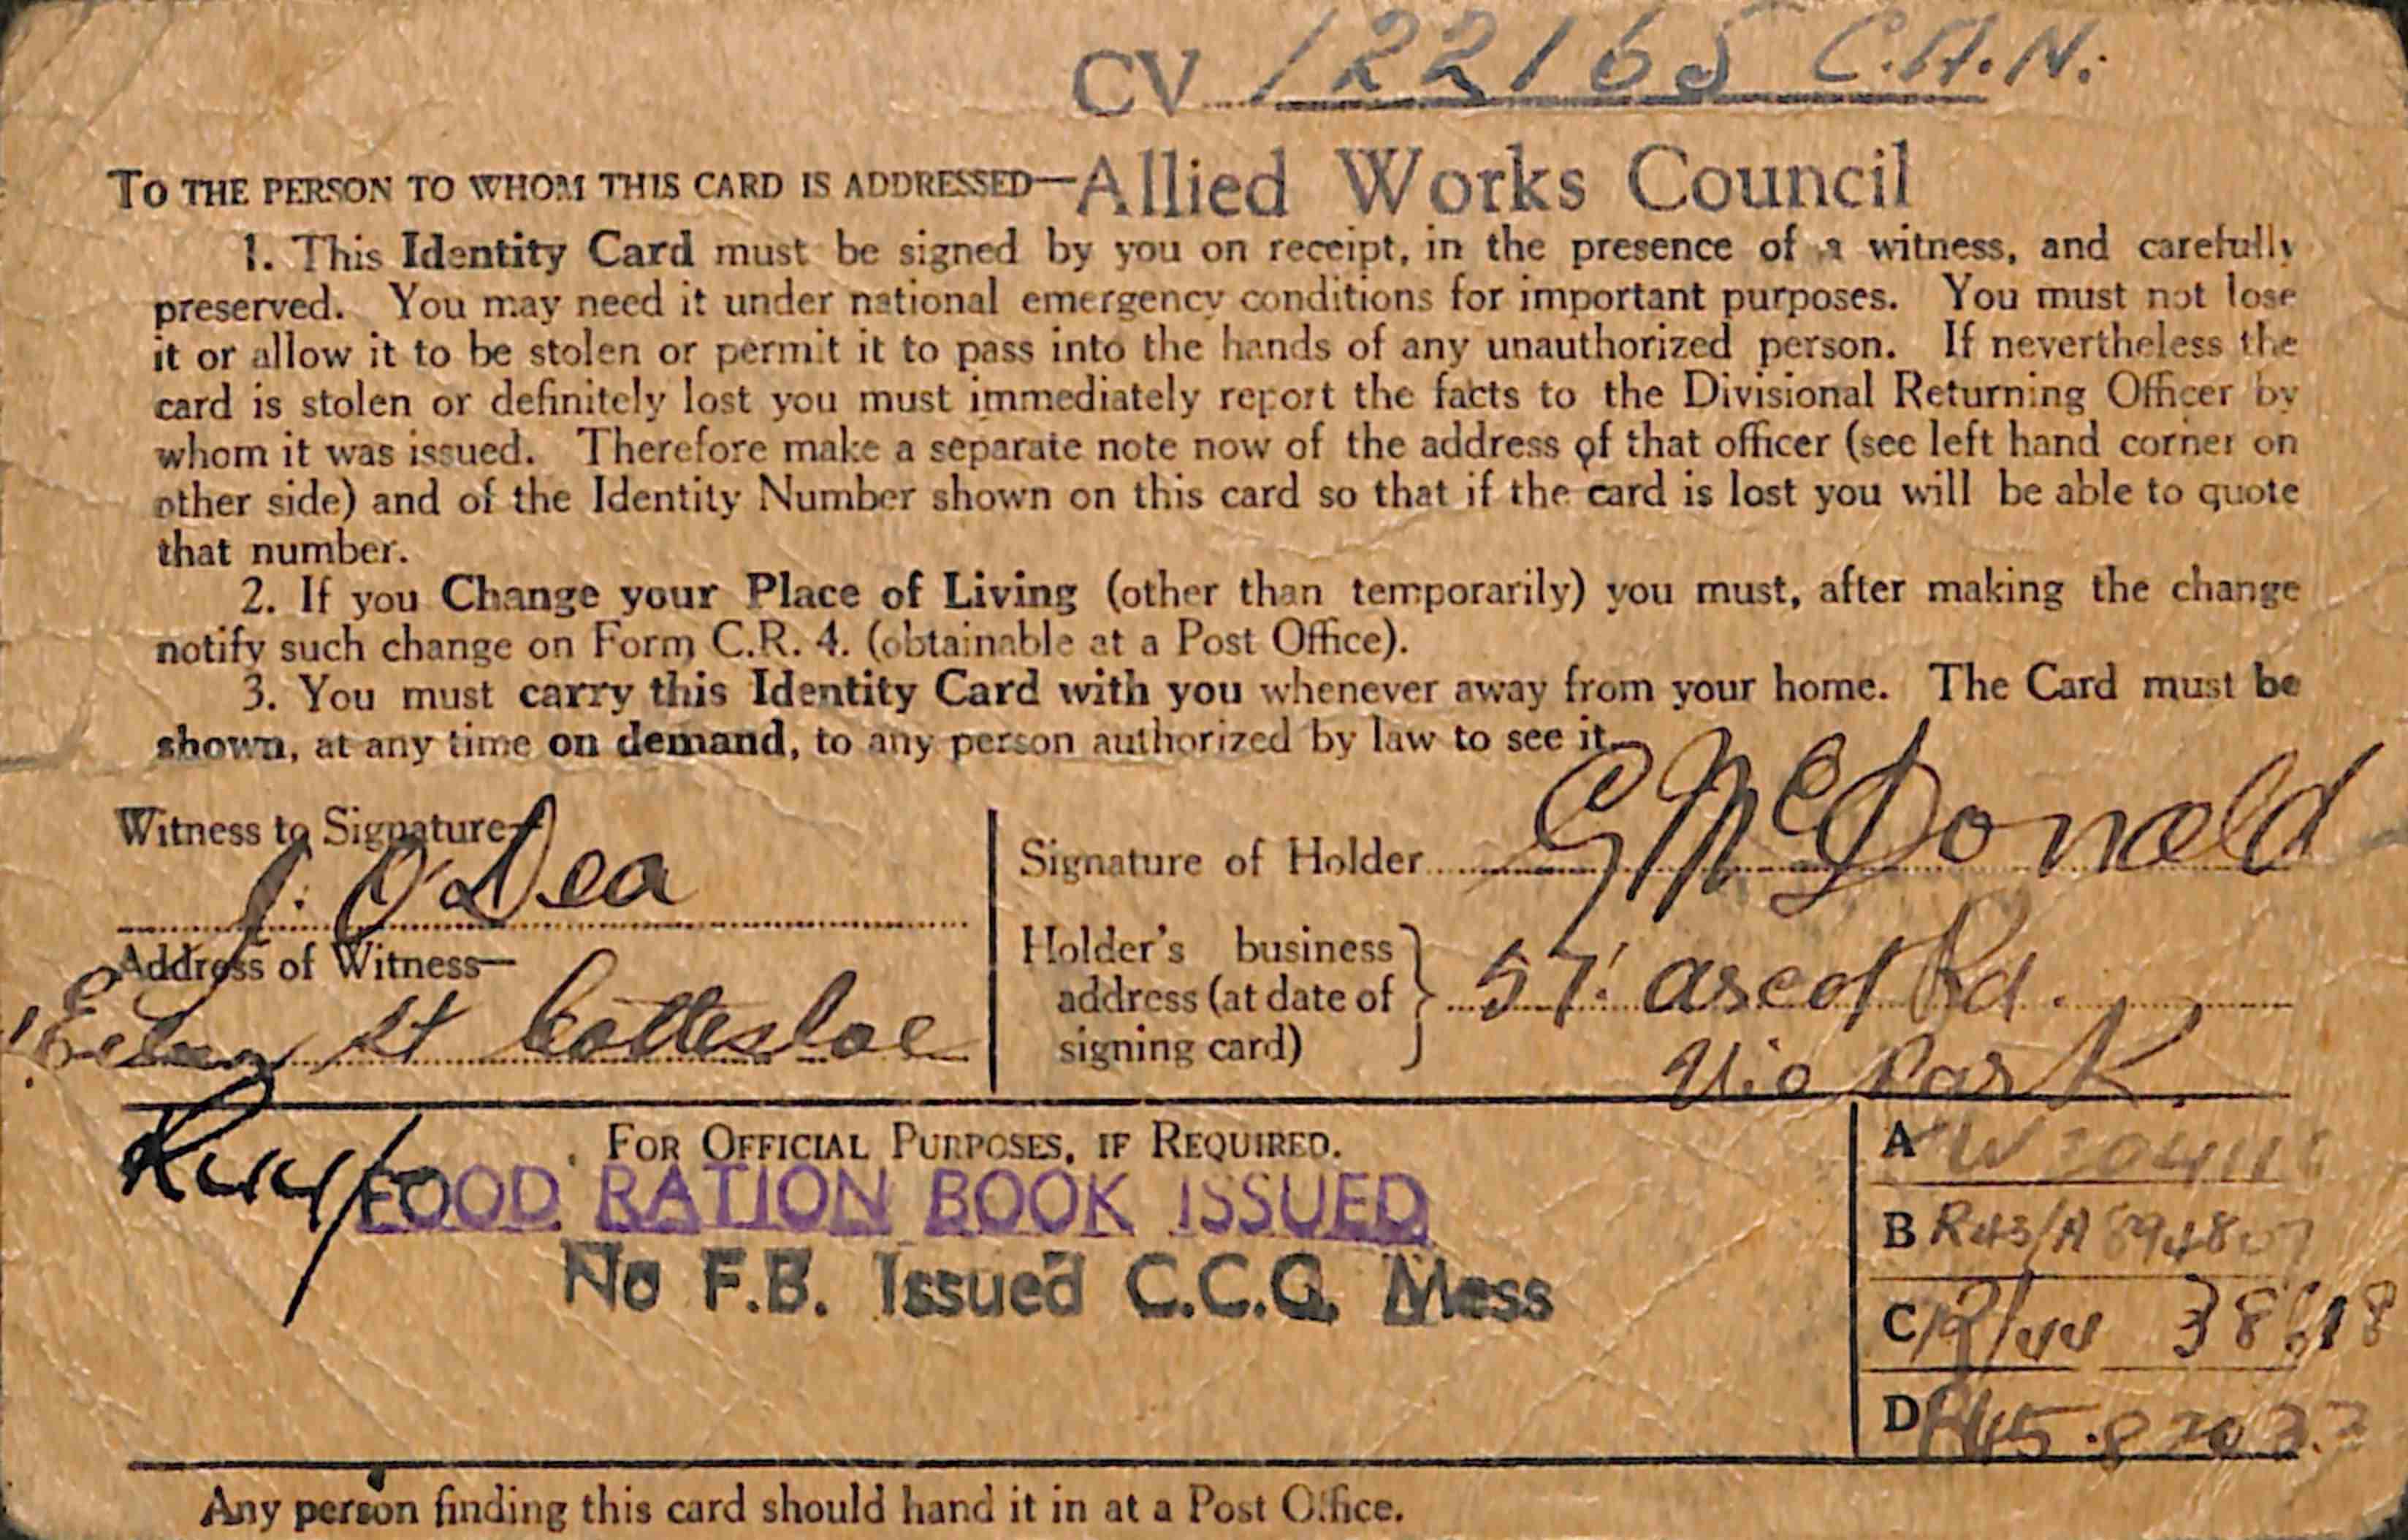 CV 122165 C.A.N.
TO THE PERSON TO WHOM THIS CARD IS ADDRESSED—Allied Works Council
1. This Identity Card must be signed by you on receipt, in the presence of a witness, and carefully
preserved. You may need it under national emergency conditions for important purposes. You must not lose
it or allow it to be stolen or permit it to pass into the hands of any unauthorized person. If nevertheless the
card is stolen or definitely lost you must immediately report the facts to the Divisional Returning Officer by
whom it was issued. Therefore make a separate note now of the address of that officer (see left hand corner on
other side) and of the Identity Number shown on this card so that if the card is lost you will be able to quote
that number.
2. If you Change your Place of Living (other than temporarily) you must, after making the change
notify such change on Form C.R. 4. (obtainable at a Post Office).
3. You must carry this Identity Card with you whenever away from your home. The Card must be
shown, at any time on demand, to any person authorized by law to see it.
Witness to Signature—
J. O'Dea
Address of Witness—
St Cottesloe
Signature of Holder G McDonald
Holder's business address (at date of signing card) 57 Ascot Rd.
Vic Park.
FOR OFFICIAL PURPOSES, IF REQUIRED.
FOOD RATION BOOK ISSUED
No F.B. Issued C.C.G. Mess
A
B R43/A
C
D
Any person finding this card should hand it in at a Post Office.